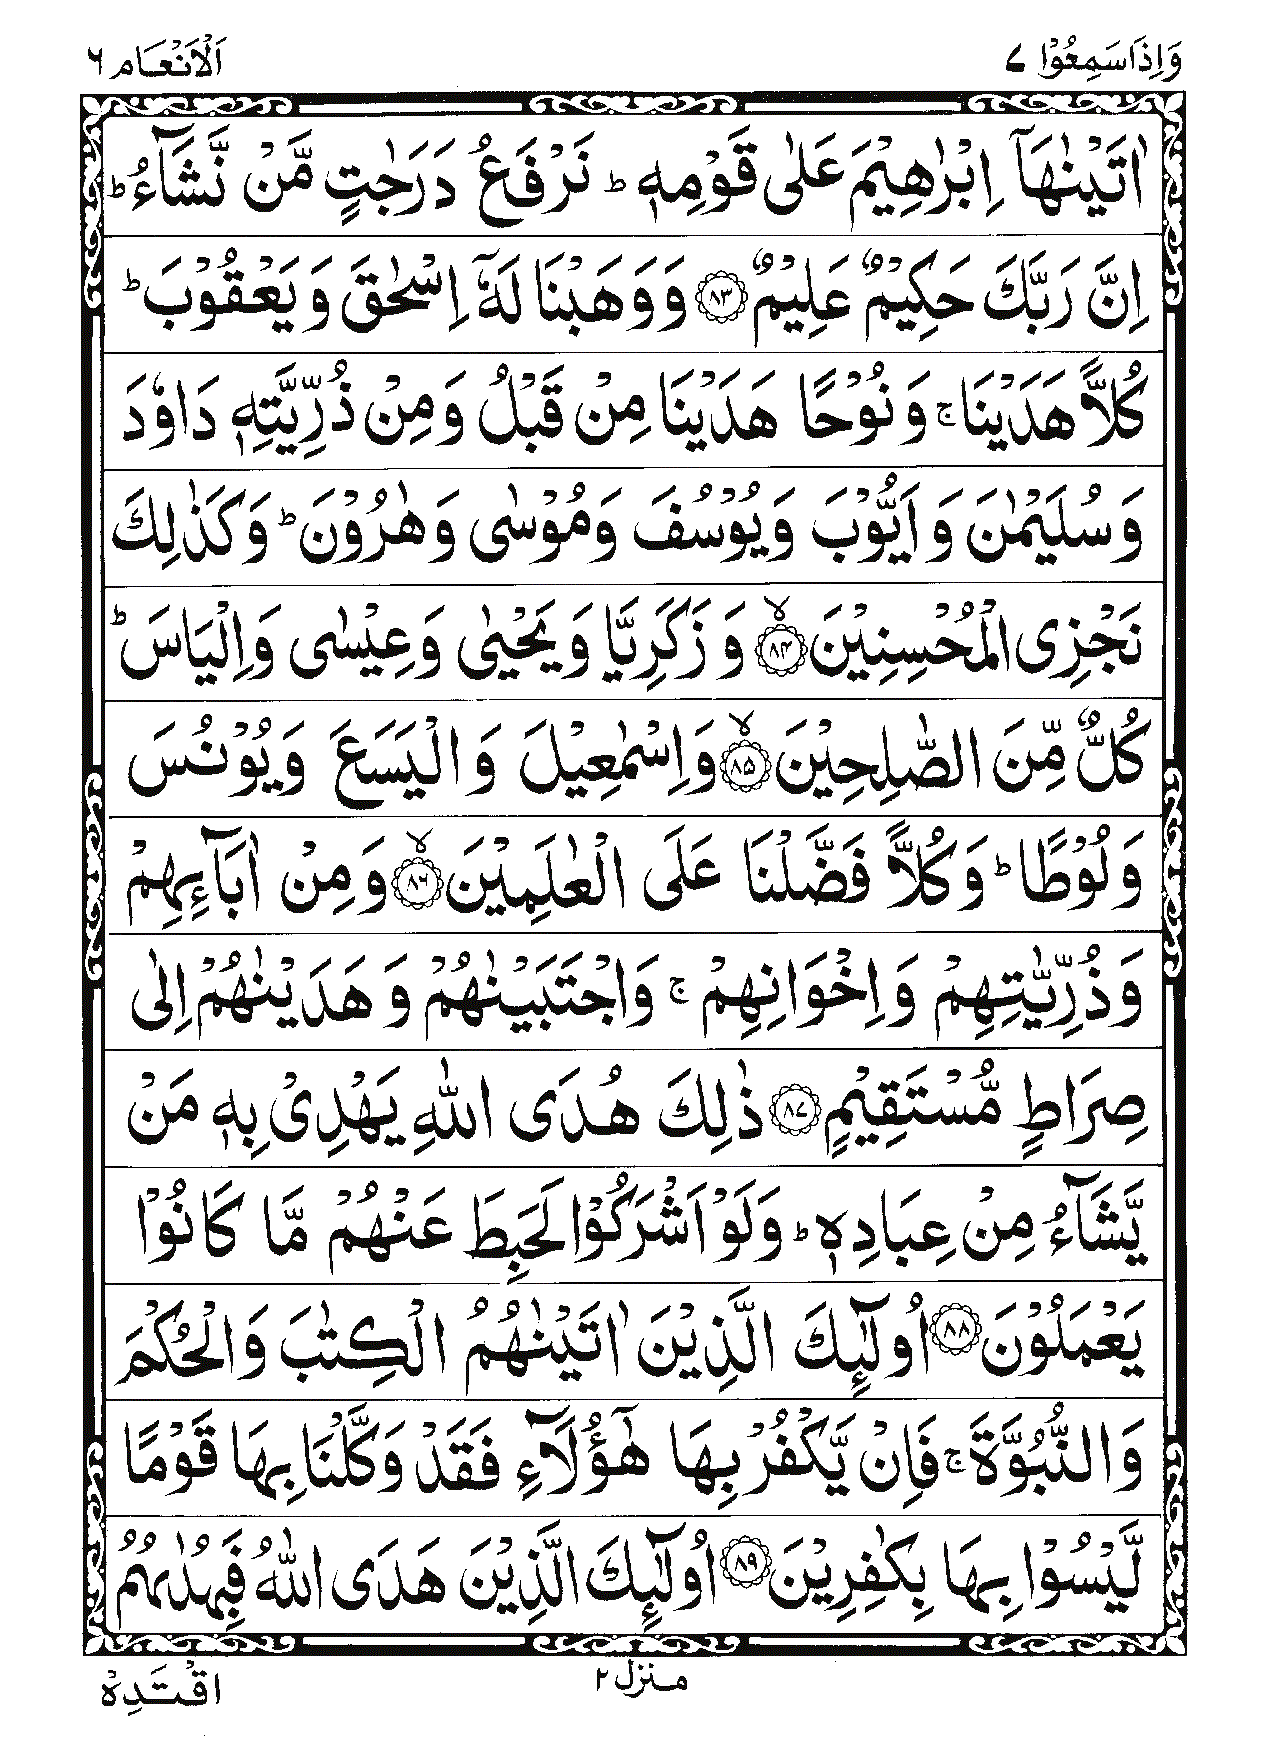 وَاِذَاسَمِعُوْا ٧
اَلْاَنْعَام ٦
اٰتَيْنٰهَآ اِبْرٰهِيْمَ عَلٰى قَوْمِهٖ ؕ نَرْفَعُ دَرَجٰتٍ مَّنْ نَّشَآءُ ؕ
اِنَّ رَبَّكَ حَكِيْمٌ عَلِيْمٌ ﴿۸۳﴾ وَوَهَبْنَا لَهٗٓ اِسْحٰقَ وَ يَعْقُوْبَ ؕ
كُلًّا هَدَيْنَا ۚ وَ نُوْحًا هَدَيْنَا مِنْ قَبْلُ وَ مِنْ ذُرِّيَّتِهٖ دَاوٗدَ
وَ سُلَيْمٰنَ وَ اَيُّوْبَ وَ يُوْسُفَ وَ مُوْسٰى وَ هٰرُوْنَ ؕ وَ كَذٰلِكَ
نَجْزِى الْمُحْسِنِيْنَ ۙ﴿۸۴﴾ وَ زَكَرِيَّا وَ يَحْيٰى وَ عِيْسٰى وَ اِلْيَاسَ ؕ
كُلٌّ مِّنَ الصّٰلِحِيْنَ ۙ﴿۸۵﴾ وَ اِسْمٰعِيْلَ وَ الْيَسَعَ وَ يُوْنُسَ
وَ لُوْطًا ؕ وَ كُلًّا فَضَّلْنَا عَلَى الْعٰلَمِيْنَ ۙ﴿۸۶﴾ وَ مِنْ اٰبَآءِهِمْ
وَ ذُرِّيّٰتِهِمْ وَ اِخْوَانِهِمْ ۚ وَ اجْتَبَيْنٰهُمْ وَ هَدَيْنٰهُمْ اِلٰى
صِرَاطٍ مُّسْتَقِيْمٍ ﴿۸۷﴾ ذٰلِكَ هُدَى اللّٰهِ يَهْدِىْ بِهٖ مَنْ
يَّشَآءُ مِنْ عِبَادِهٖ ؕ وَلَوْ اَشْرَكُوْا لَحَبِطَ عَنْهُمْ مَّا كَانُوْا
يَعْمَلُوْنَ ﴿۸۸﴾ اُولٰٓئِكَ الَّذِيْنَ اٰتَيْنٰهُمُ الْكِتٰبَ وَ الْحُكْمَ
وَ النُّبُوَّةَ ۚ فَاِنْ يَّكْفُرْ بِهَا هٰٓؤُلَآءِ فَقَدْ وَكَّلْنَا بِهَا قَوْمًا
لَّيْسُوْا بِهَا بِكٰفِرِيْنَ ﴿۸۹﴾ اُولٰٓئِكَ الَّذِيْنَ هَدَى اللّٰهُ فَبِهُدٰىهُمُ
منزل ٢
اقْتَدِهْ